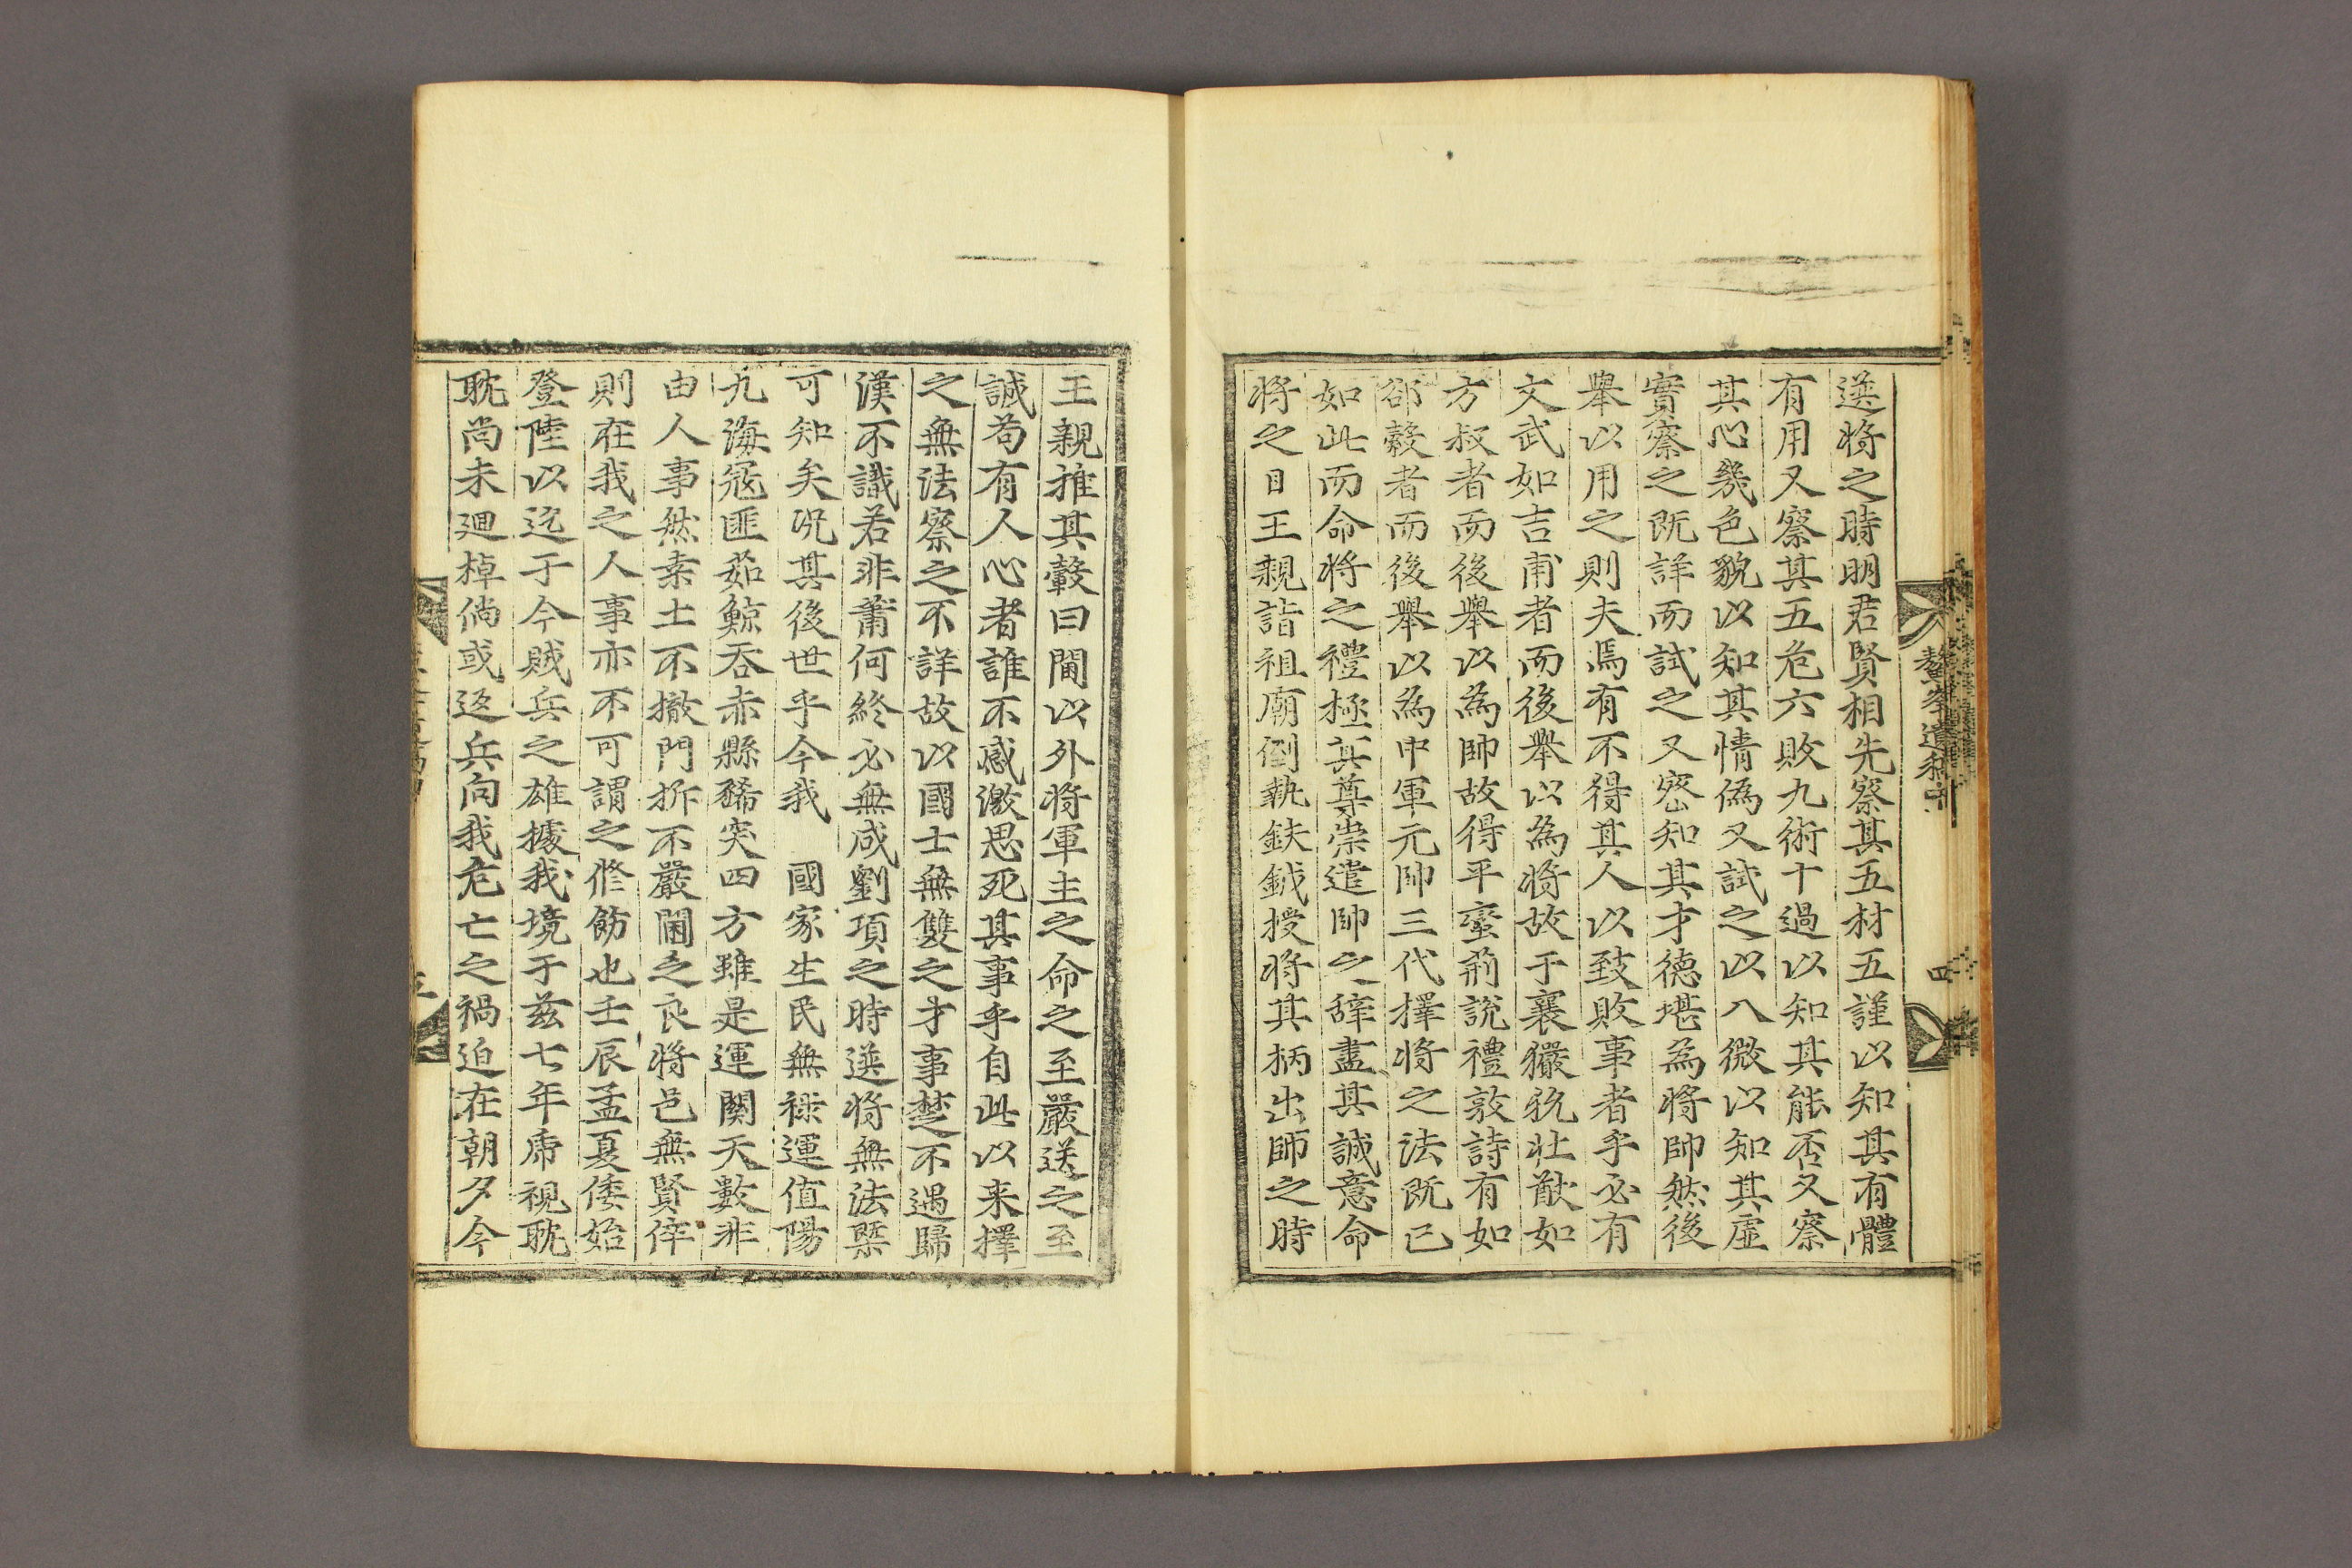 選將之時明君賢相先察其五材五謹以知其有體
有用又察其五危六敗九術十過以知其能否又察
其心幾色貌以知其情僞又試之以八微以知其虛
實察之旣詳而試之又密知其才德堪爲將帥然後
擧以用之則夫焉有不得其人以致敗事者乎必有
文武如吉甫者而後擧以爲將故于襄玁狁壯猷如
方叔者而後擧以爲帥故得平蠻荊說禮敦詩有如
郤縠者而後擧以爲中軍元帥三代擇將之法旣已
如此而命將之禮極其尊崇遣帥之辭盡其誠意命
將之日王親詣祖廟倒執鈇鉞授將其柄出師之時
鰲峯遺稿
四
王親推其轂曰閫以外將軍主之命之至嚴送之至
誠苟有人心者誰不感激思死其事乎自此以来擇
之無法察之不詳故以國士無雙之才事楚不遇歸
漢不識若非蕭何終必無成劉項之時選將無法槩
可知矣況其後世乎今我　國家生民無祿運值陽
九海寇匪茹鯨呑赤縣豨突四方雖是運關天數非
由人事然桑土不撤門拆不嚴閫乏良將邑無賢倅
則在我之人事亦不可謂之修飭也壬辰孟夏倭始
登陸以迄于今賊兵之雄據我境于玆七年虎視耽
耽尚未廻棹倘或返兵向我危亡之禍迫在朝夕今